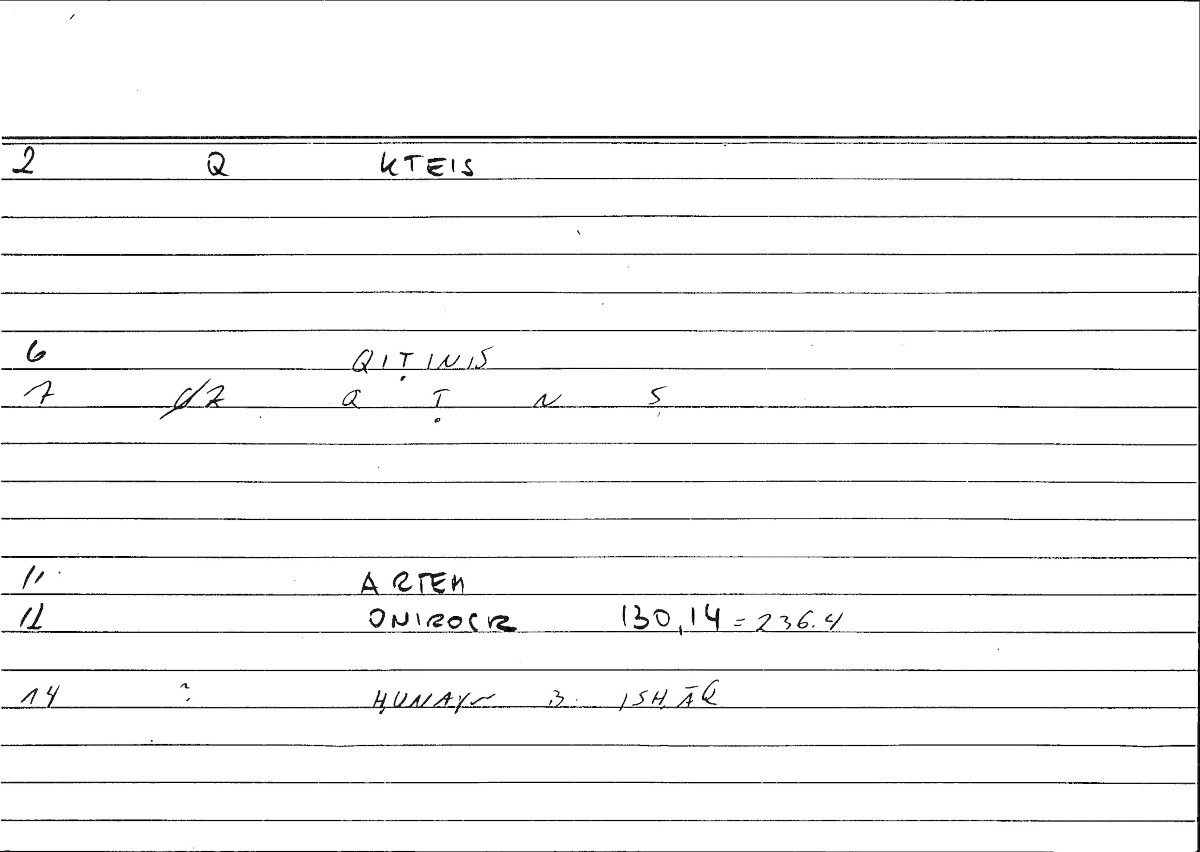 2 Q KTEIS
6 QIṬINIS
7 Q Ṭ N S
11 ARTEM
12 ONIROCR 130,14 = 236.4
14 ? ḤUNAYN B. ISḤĀQ